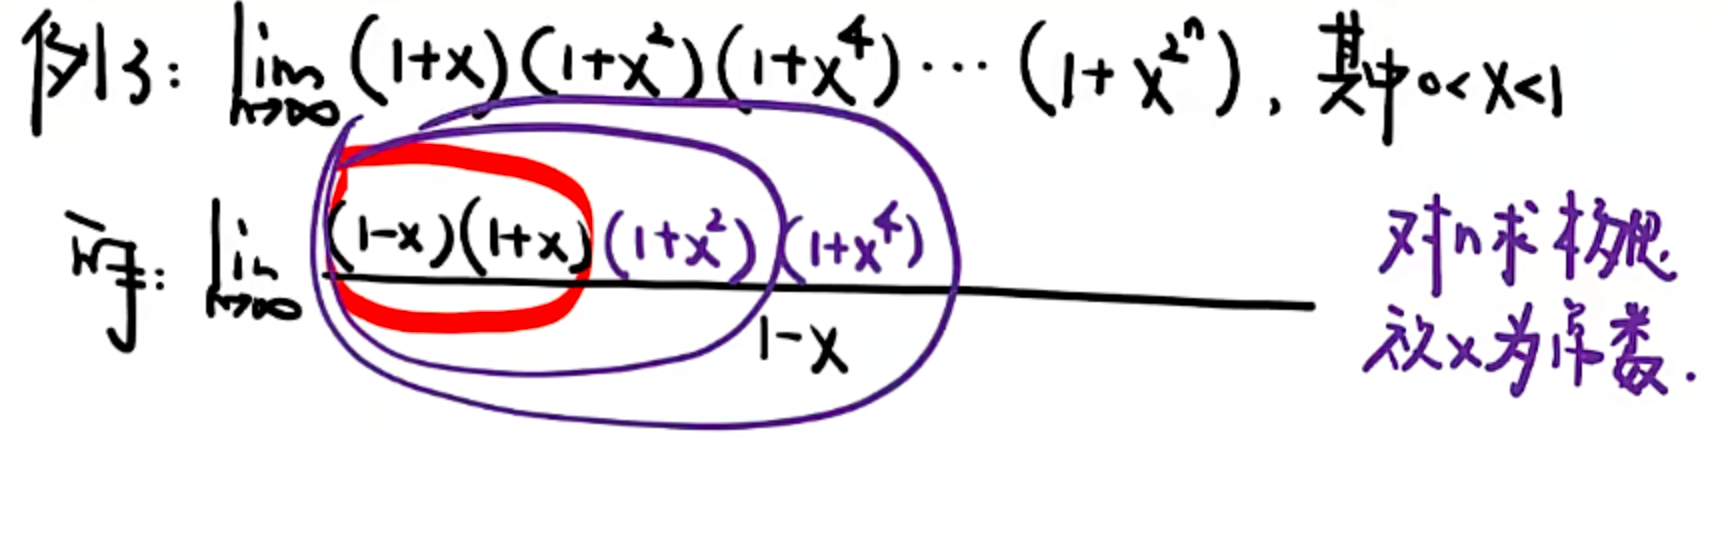 例3: lim n→∞ (1+x)(1+x²)(1+x⁴)⋯(1+x^{2^n}), 其中0<x<1
解: lim n→∞ (1-x)(1+x)(1+x²)(1+x⁴)
1-x
对n求极限
故x为常数.